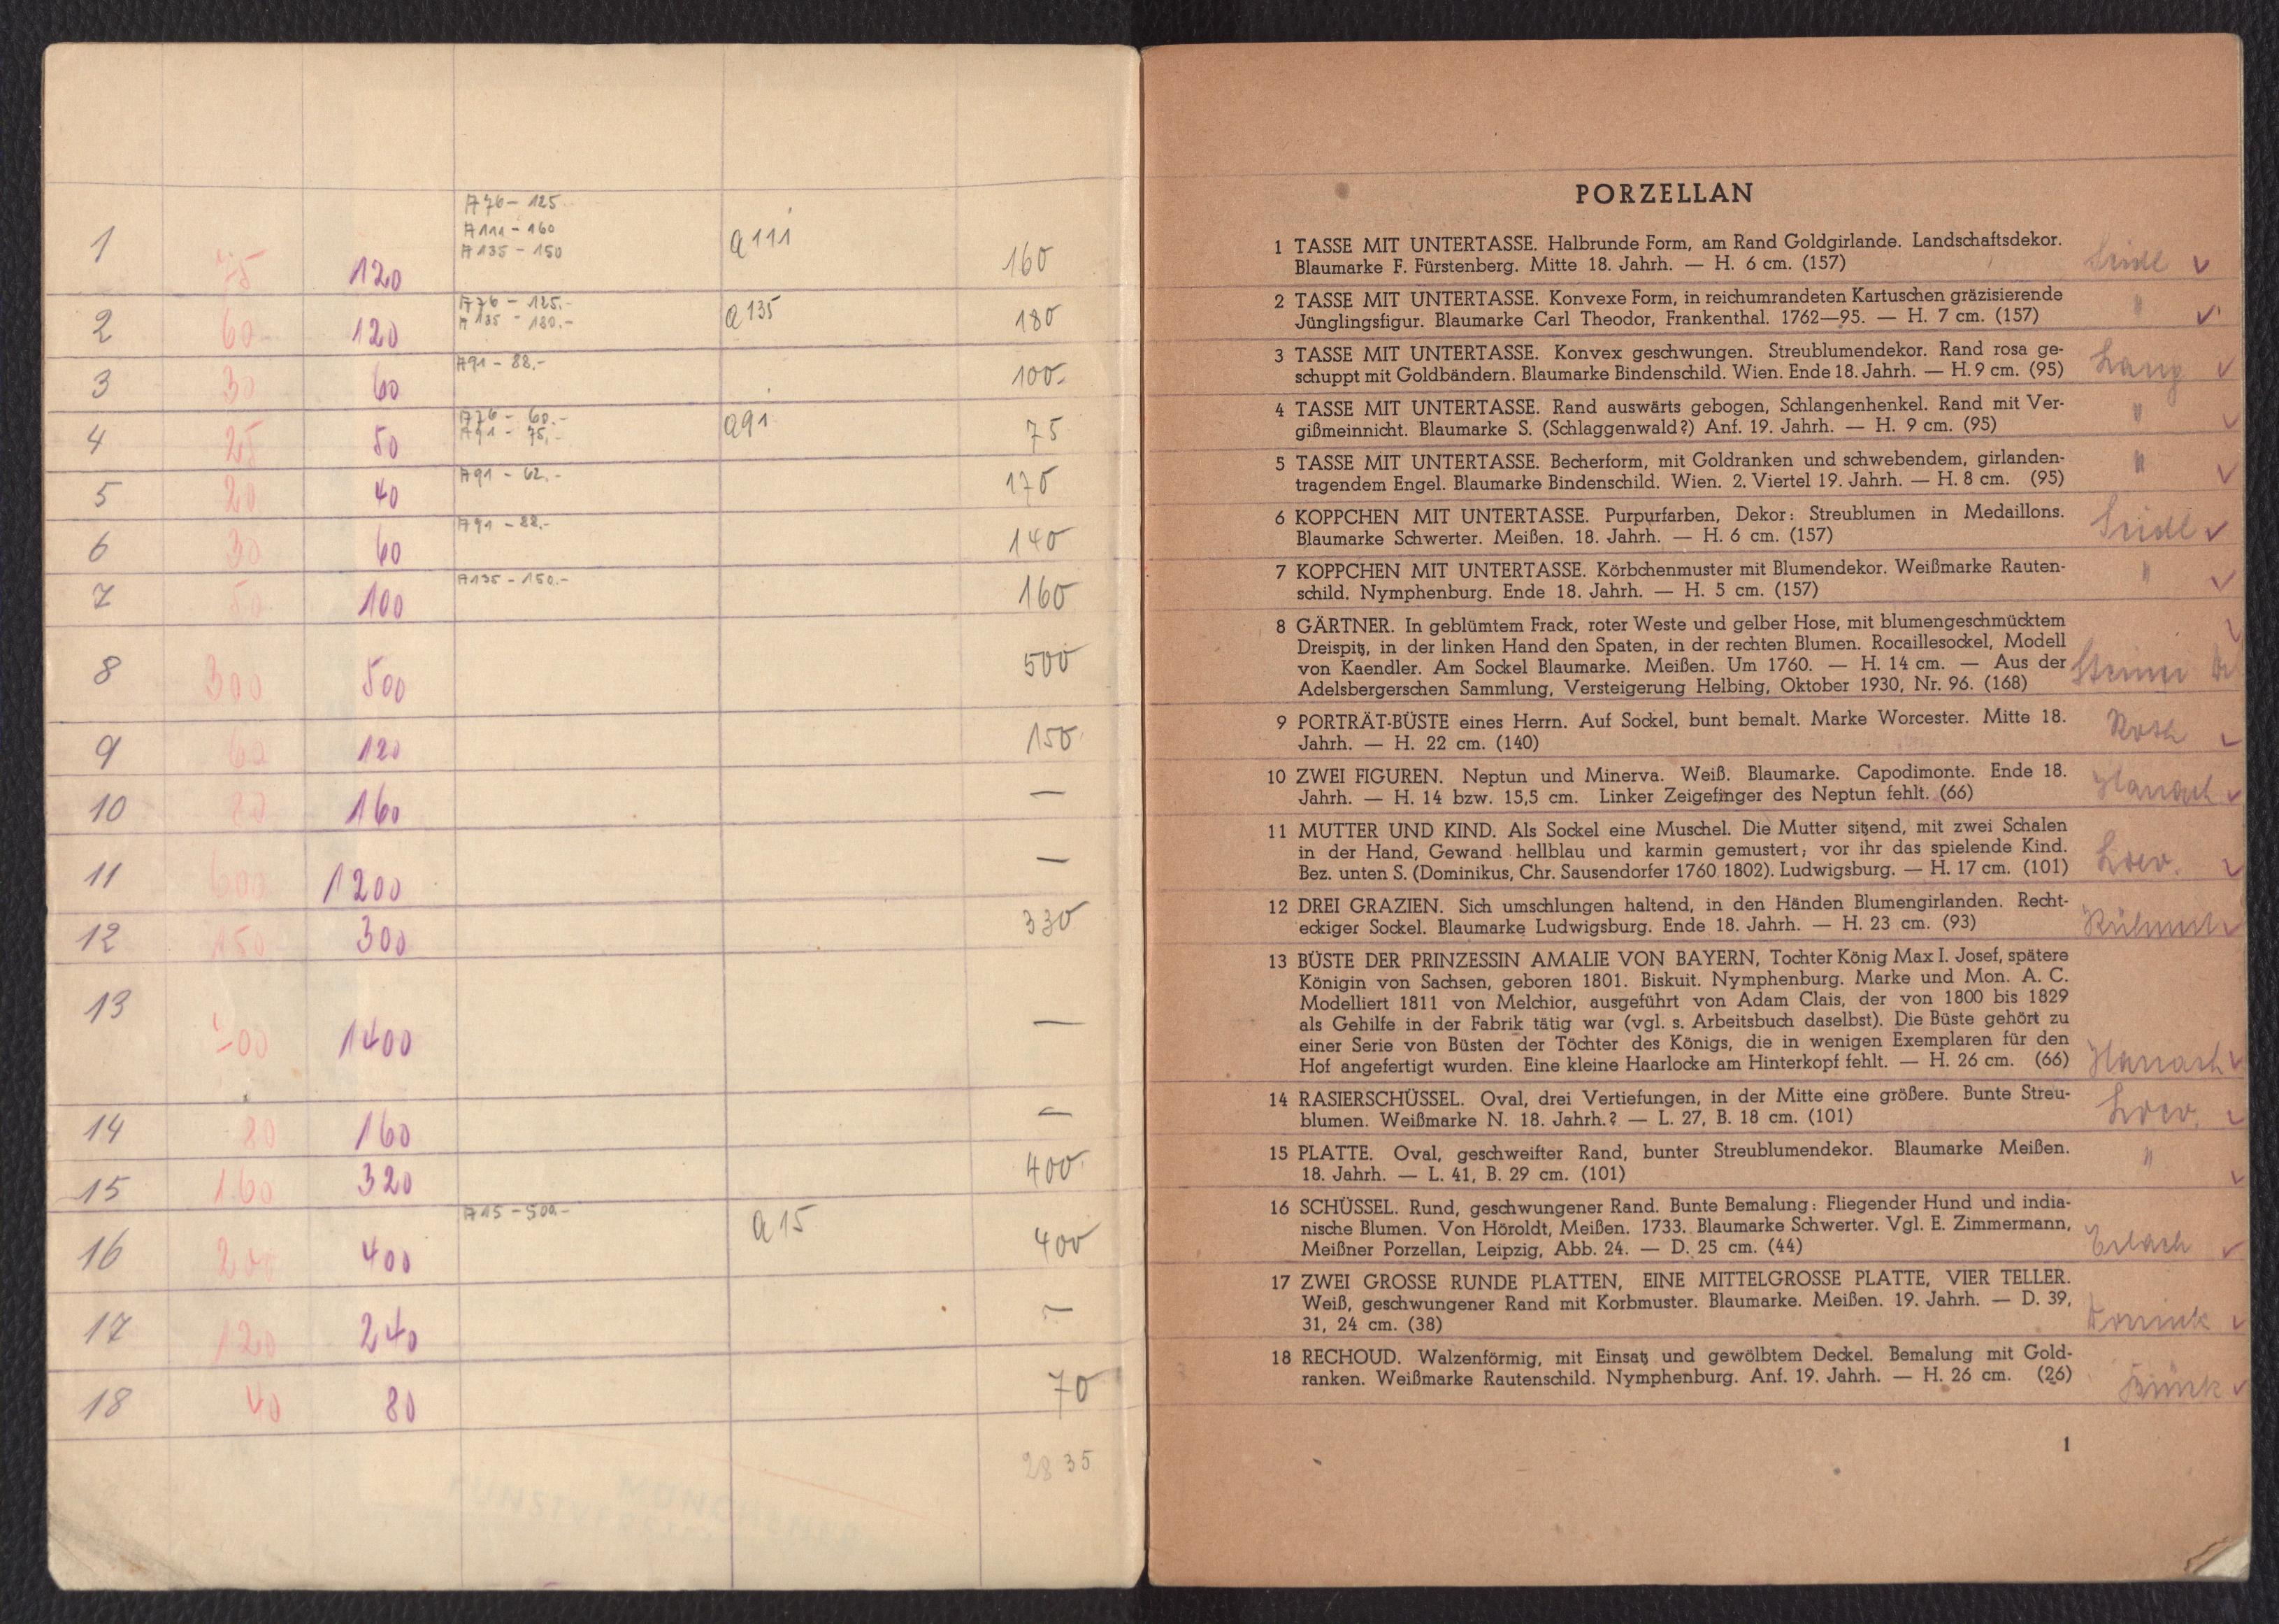 A 76 – 125
A 111 – 160
1 A 135 – 150 a 111
75 120 160
A 76 – 125.-
2 60 120 A 135 – 180.- a 135 180
A 91 – 88.-
3 30 60 100.-
A 76 – 60.-
4 25 50 A 91 – 75.- a 91 75
A 91 – 62.-
5 20 40 170
A 91 – 88.-
6 30 60 140
A 135 – 150.-
7 50 100 160
8 300 500 500
9 60 120 150
10 80 160 —
11 600 1200 —
12 150 300 330
13 1400 —
14 80 160 —
15 160 320 400
A 15 – 500.-
16 200 400 a 15 400
17 120 240 —
18 40 80 70
2835
MÜNCHENER
PORZELLAN
1 TASSE MIT UNTERTASSE. Halbrunde Form, am Rand Goldgirlande. Landschaftsdekor.
Blaumarke F. Fürstenberg. Mitte 18. Jahrh. — H. 6 cm. (157) Seidl ✓
2 TASSE MIT UNTERTASSE. Konvexe Form, in reichumrandeten Kartuschen gräzisierende
Jünglingsfigur. Blaumarke Carl Theodor, Frankenthal. 1762—95. — H. 7 cm. (157) " ✓
3 TASSE MIT UNTERTASSE. Konvex geschwungen. Streublumendekor. Rand rosa ge-
schuppt mit Goldbändern. Blaumarke Bindenschild. Wien. Ende 18. Jahrh. — H. 9 cm. (95) Lang ✓
4 TASSE MIT UNTERTASSE. Rand auswärts gebogen, Schlangenhenkel. Rand mit Ver-
gißmeinnicht. Blaumarke S. (Schlaggenwald?) Anf. 19. Jahrh. — H. 9 cm. (95) " ✓
5 TASSE MIT UNTERTASSE. Becherform, mit Goldranken und schwebendem, girlanden-
tragendem Engel. Blaumarke Bindenschild. Wien. 2. Viertel 19. Jahrh. — H. 8 cm. (95) " ✓
6 KOPPCHEN MIT UNTERTASSE. Purpurfarben, Dekor: Streublumen in Medaillons.
Blaumarke Schwerter. Meißen. 18. Jahrh. — H. 6 cm. (157) Seidl ✓
7 KOPPCHEN MIT UNTERTASSE. Körbchenmuster mit Blumendekor. Weißmarke Rauten-
schild. Nymphenburg. Ende 18. Jahrh. — H. 5 cm. (157) " ✓
8 GÄRTNER. In geblümtem Frack, roter Weste und gelber Hose, mit blumengeschmücktem
Dreispitz, in der linken Hand den Spaten, in der rechten Blumen. Rocaillesockel, Modell
von Kaendler. Am Sockel Blaumarke. Meißen. Um 1760. — H. 14 cm. — Aus der
Adelsbergerschen Sammlung, Versteigerung Helbing, Oktober 1930, Nr. 96. (168)
9 PORTRÄT-BÜSTE eines Herrn. Auf Sockel, bunt bemalt. Marke Worcester. Mitte 18.
Jahrh. — H. 22 cm. (140) Roth ✓
10 ZWEI FIGUREN. Neptun und Minerva. Weiß. Blaumarke. Capodimonte. Ende 18.
Jahrh. — H. 14 bzw. 15,5 cm. Linker Zeigefinger des Neptun fehlt. (66) Harrach ✓
11 MUTTER UND KIND. Als Sockel eine Muschel. Die Mutter sitzend, mit zwei Schalen
in der Hand, Gewand hellblau und karmin gemustert; vor ihr das spielende Kind.
Bez. unten S. (Dominikus, Chr. Sausendorfer 1760 1802). Ludwigsburg. — H. 17 cm. (101) ✓
12 DREI GRAZIEN. Sich umschlungen haltend, in den Händen Blumengirlanden. Recht-
eckiger Sockel. Blaumarke Ludwigsburg. Ende 18. Jahrh. — H. 23 cm. (93) ✓
13 BÜSTE DER PRINZESSIN AMALIE VON BAYERN, Tochter König Max I. Josef, spätere
Königin von Sachsen, geboren 1801. Biskuit. Nymphenburg. Marke und Mon. A. C.
Modelliert 1811 von Melchior, ausgeführt von Adam Clais, der von 1800 bis 1829
als Gehilfe in der Fabrik tätig war (vgl. s. Arbeitsbuch daselbst). Die Büste gehört zu
einer Serie von Büsten der Töchter des Königs, die in wenigen Exemplaren für den
Hof angefertigt wurden. Eine kleine Haarlocke am Hinterkopf fehlt. — H. 26 cm. (66) Harrach ✓
14 RASIERSCHÜSSEL. Oval, drei Vertiefungen, in der Mitte eine größere. Bunte Streu-
blumen. Weißmarke N. 18. Jahrh.? — L. 27, B. 18 cm. (101) ✓
15 PLATTE. Oval, geschweifter Rand, bunter Streublumendekor. Blaumarke Meißen.
18. Jahrh. — L. 41, B. 29 cm. (101) " ✓
16 SCHÜSSEL. Rund, geschwungener Rand. Bunte Bemalung: Fliegender Hund und india-
nische Blumen. Von Höroldt, Meißen. 1733. Blaumarke Schwerter. Vgl. E. Zimmermann,
Meißner Porzellan, Leipzig, Abb. 24. — D. 25 cm. (44) Erlach ✓
17 ZWEI GROSSE RUNDE PLATTEN, EINE MITTELGROSSE PLATTE, VIER TELLER.
Weiß, geschwungener Rand mit Korbmuster. Blaumarke. Meißen. 19. Jahrh. — D. 39,
31, 24 cm. (38) ✓
18 RECHOUD. Walzenförmig, mit Einsatz und gewölbtem Deckel. Bemalung mit Gold-
ranken. Weißmarke Rautenschild. Nymphenburg. Anf. 19. Jahrh. — H. 26 cm. (26) ✓
1